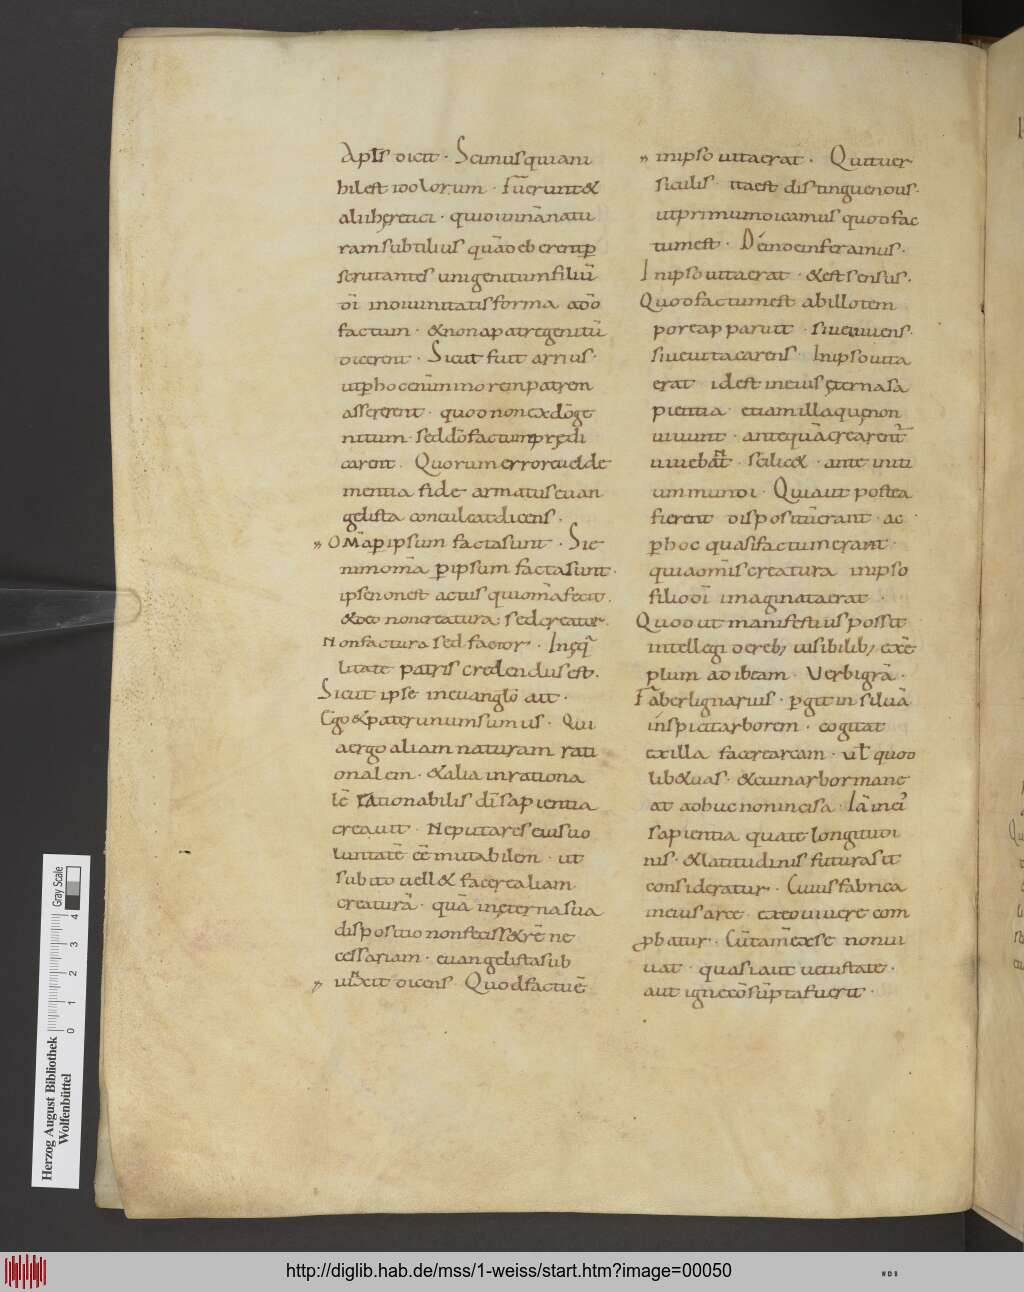 Apl̅s dicit · Scimus quia ni
hil est idolorum · Fuer̅unt &
alii hęretici · qui diuinā natu
ram subtilius quā deberent p̲
scrutantes unigenitum filiū
dī in diuinitatis forma a dō
factum · & non a patre genitū
dicerent · Sicut fuit arrius ·
ut p̲ hoc enī minorem patrem
assererent · quod non ex dō ge
nitum · sed dō factum prędi
carent · Quorum error euelde
mentia fide armatus euan
gelista conculcat dicens ·
» OMA̅ p̲ ipsum facta sunt · Si e
nim omā p̲ ipsum facta sunt ·
ipse non est actus qui omā fecit ·
& deo non creatura; sed creator ·
Non factura sed factor · In ęq̄
litate patris credendus est ·
Sicut ipse in euanglo̅ ait ·
Ego & pater unum sumus · Qui
a ergo aliam naturam rati
onalem · & alia inrationa
lē rationabilis dī sapientia
creauit · Ne putares eius uo
luntatē eē mutabilem · ut
subito uell& facere aliam
creaturā · quā in ęterna sua
dispositio non feciss& rē ne
cessariam · euangelista sub
» iunxit dicens · Quod factū ē
» in ipso uita erat · Qui uer
siculis · ita est distinguendus ·
ut primum dicamus quod fac
tum est · Dein̄ de inferamus ·
In ipso uita erat · & est sensus ·
Quod factum est ab illo tem
pore apparuit · siue uiuens ·
siue uita carens · In ipso uita
erat id est in eius ęterna sa
pientia etiam illa quę non
uiuunt · antequā crearent̅
uiuebant · scilic& · ante initi
um mundi · Quia ut postea
fierent disposituerant · ac
p̲ hoc quasi factum erant ·
quia omīs creatura in ipso
filio dī imaginata erat ·
Quod ut manifestius possit
intellegi de reb; uisibilib; exē
plum adibeam · Verbi grā ·
Faber lignarius · p̲git in siluā
inspicit arborem · cogitat
ex illa facere arcam · ul̅ quod
lib& uas · & cum arbor mane
at adhuc non incisa · Iā in ei'
sapientia qua te longitudi
nis · & latitudinis futura sit
consideratur · Cuius fabrica
in eius arte · ex eo uiuere com
p̲batur · Cū tam̄ ex se non ui
uat · quasi aut uetustate ·
aut igne cōsūpta fuerit ·
Herzog August Bibliothek
Wolfenbüttel
0 1 2 3 4
Gray Scale
http://diglib.hab.de/mss/1-weiss/start.htm?image=00050